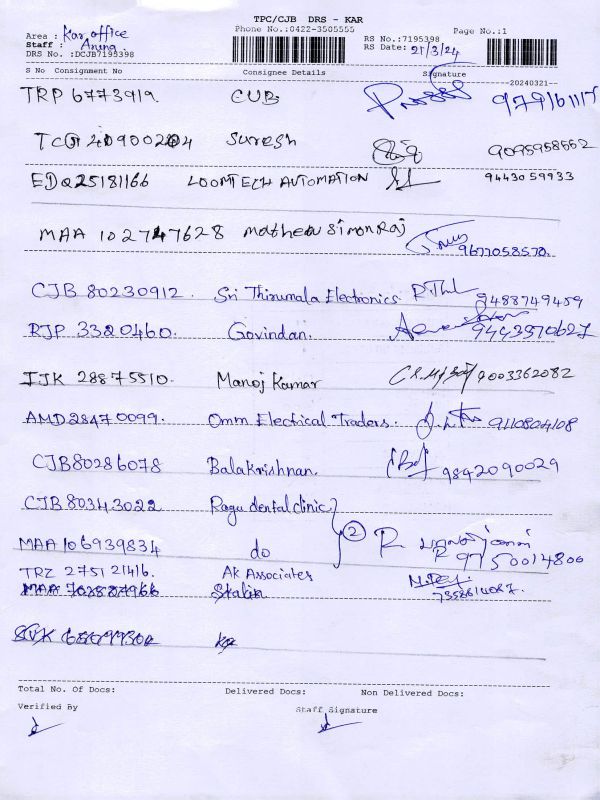 TPC/CJB DRS - KAR
Phone No.:0422-3505555
Page No.:1
Area : Kar office
Staff : Aruna
DRS No. :DCJB7195398
RS No.:7195398
RS Date: 21/3/24
S No Consignment No Consignee Details Signature
20240321
TRP 6773919. CUB
TCG 40900204 Suresh 9095958552
EDQ25181166 LOOMTECH AUTOMATION 9443059933
MAA 102747628 mathew simonraj 9677058570.
CJB 80230912. Sri Thirumala Electronics R.Thl 9488749459
RJP 3320460. Govindan. 9443570627
IJK 28875510. Manoj Kumar 9003362082
AMD28470099. Omm Electrical Traders. 9110804108
CJB80286078 Balakrishnan. 9842090029
CJB 80343022 Ragu dental clinic
MAA 106939834 do 2 R 9750014800
TRZ 275121416. AK Associates
Stalin 7358614087.
Total No. Of Docs: Delivered Docs: Non Delivered Docs:
Verified By Staff Signature